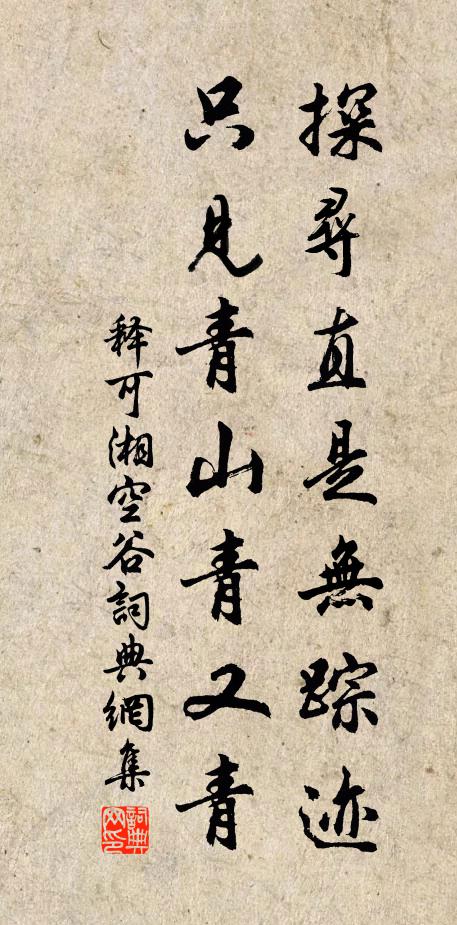 探尋直是無踪迹
只見青山青又青
释可湘空谷詞典網集
詞典网印